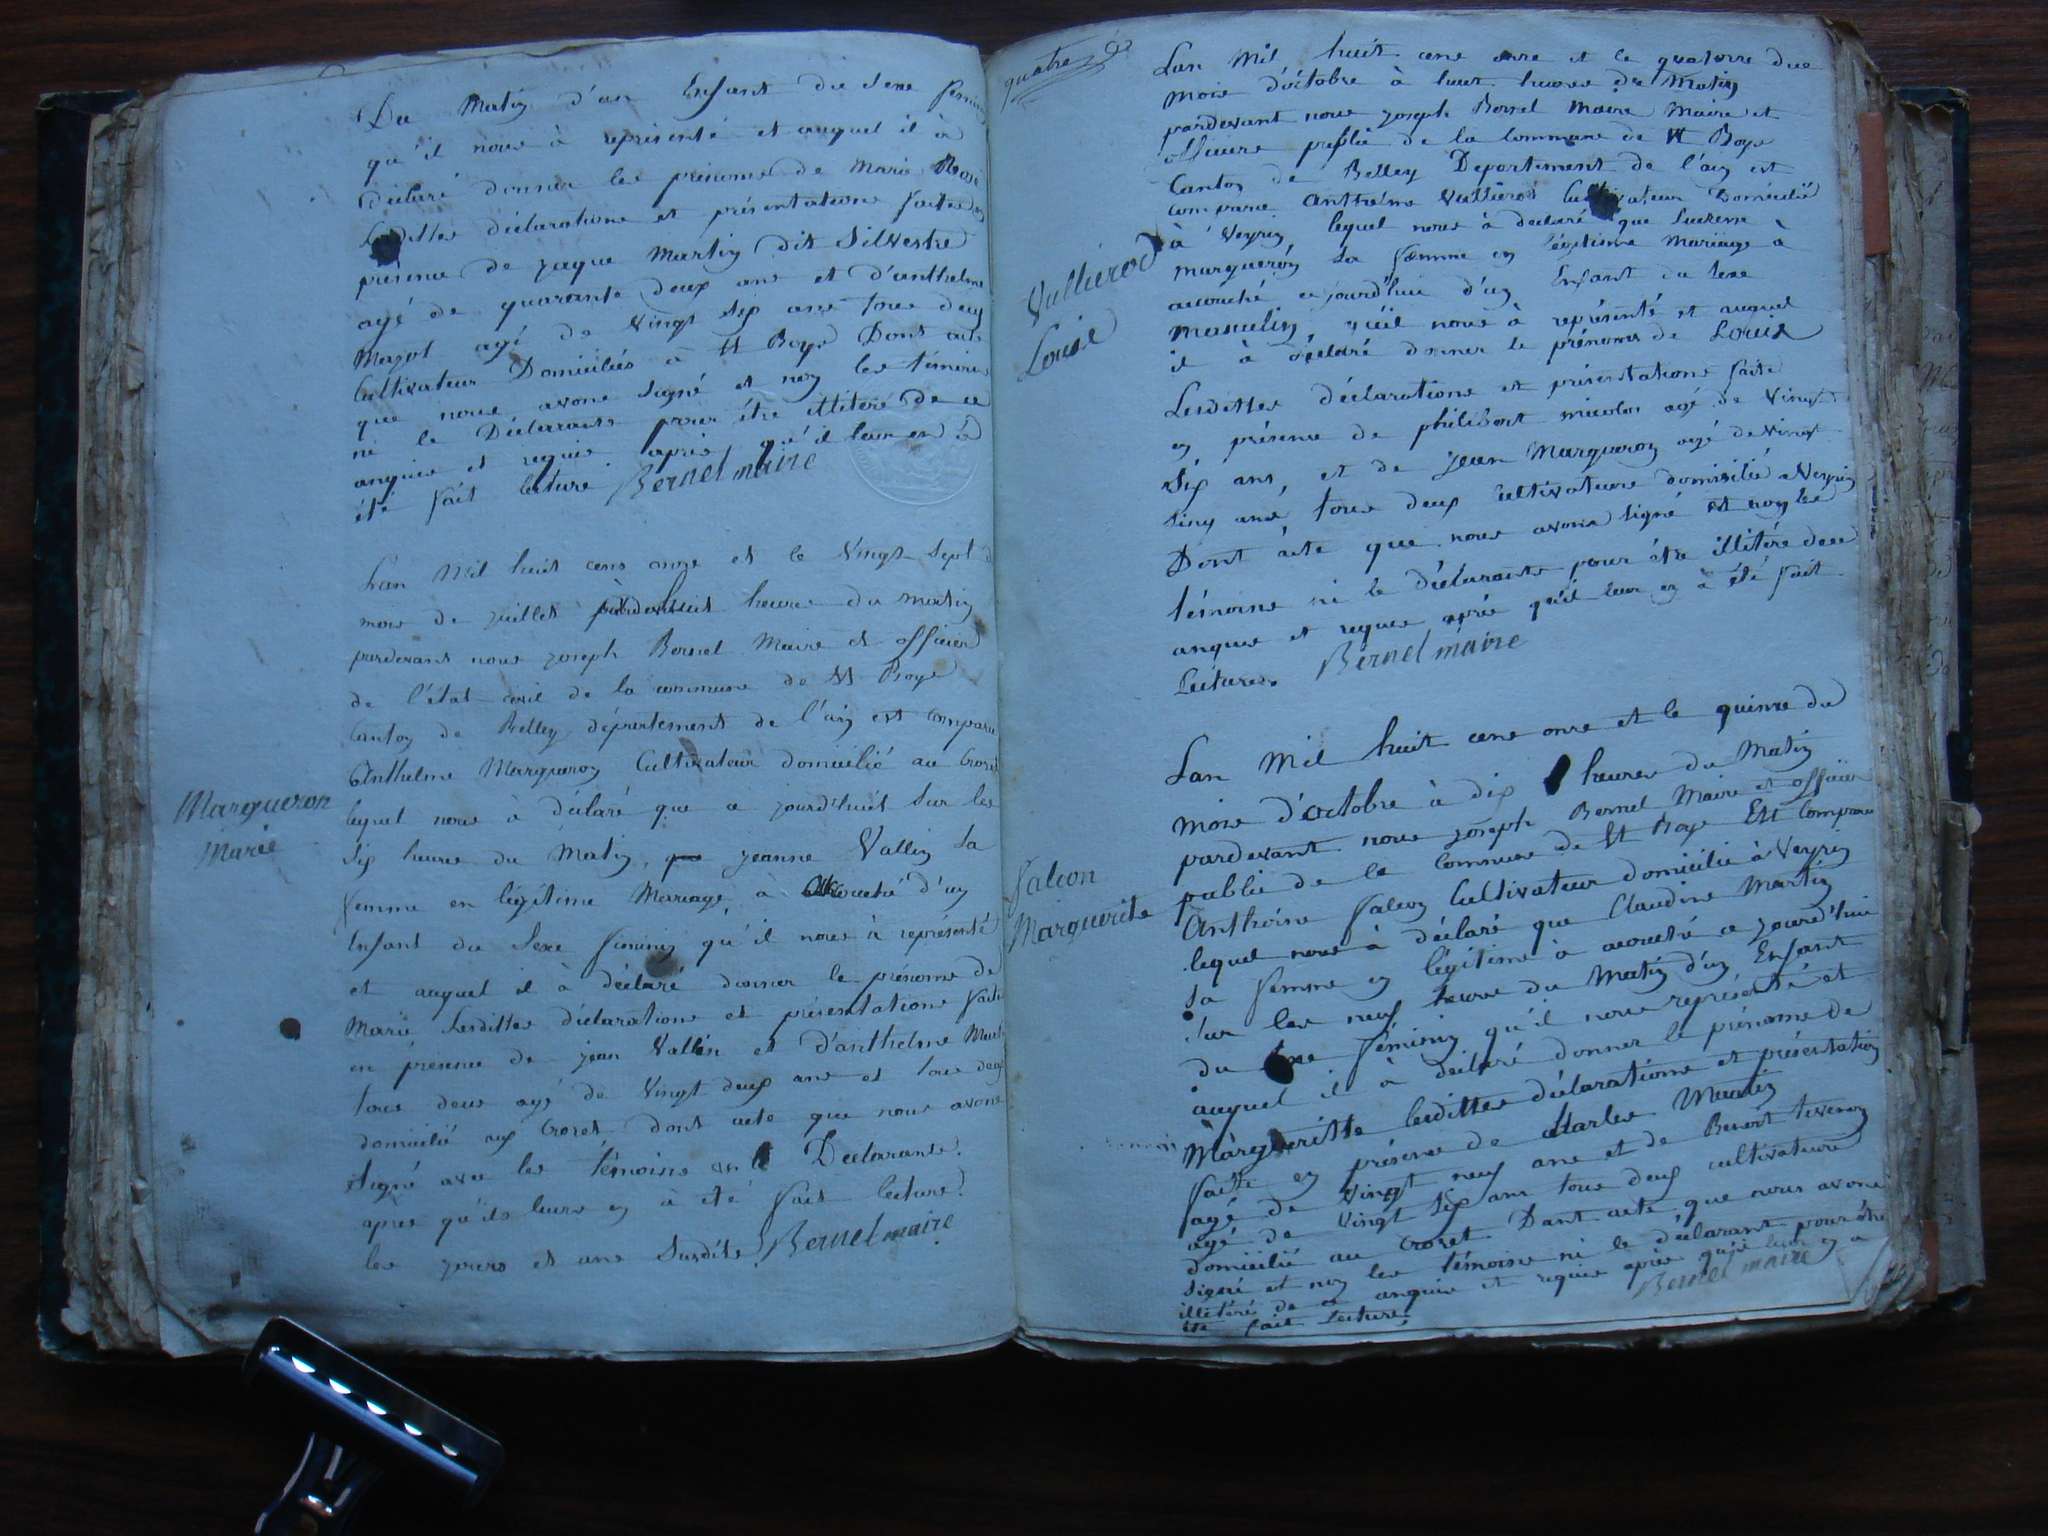 Du Matin d'un Enfant du sexe
qu'il nous à représenté et auquel il à
déclaré donner les prénoms de Marie Rose
Lesdittes déclarations et présentations faites en
présence de jaque Martin dit Silvestre
agé de quarante deux ans et d'anthelme
Mazot agé de vingt sip ans tous deux
Cultivateur Domiciliés à St Boys Dont acte
que nous avons signé et non les témoins
ni le Déclarant pour être illiteré de ce
anquis et requis après qu'il leur en à
été fait lecture Bernel maire
Lan Mil huit cens onze et le vingt sept du
mois de juillet huit heures du matin
pardevant nous joseph Bernel Maire et officier
de l'état civil de la commune de St Boys
Canton de Belley département de l'ain est comparu
Anthelme Margueron Cultivateur domicilié au Crozet
Margueron
Marie
lequel nous à déclaré que ce jourd'huit sur les
sip heures du Matin, jeanne Vallin sa
femme en légitime Mariage à accouché d'un
Enfant du sexe féminin qu'il nous à représenté
et auquel il à déclaré donner le prénoms de
Marie Lesdittes déclarations et présentations faites
en présence de jean Vallin et d'anthelme
tous deux agé de vingt deux ans et tous deux
domicilié au Crozet dont acte que nous avons
signé avec les témoins le Déclarant
après qu'ils leurs en à été fait lecture
les jours et ans susdits Bernel maire
quatre
Lan Mil huit cens onze et le quatorze du
mois d'octobre à huit heures du Matin
pardevant nous joseph Bernel Maire Maire et
officier publie de la Commune de St Boys
Canton de Belley Departement de l'ain est
comparu Anthelme Vullierod Cultivateur Domicilié
Vullierod
Louis
à Veyrin, lequel nous à déclaré que
margueron sa femme en légitime Mariage à
accouché ce jourd'hui d'un Enfant du sexe
masculin, qu'il nous à représenté et auquel
il à déclaré donner le prénoms de Louis
Lesdittes déclarations et présentations faite
en présence de philibert micolon agé de vingt
sip ans, et de jean Margueron agé de vingt
cinq ans, tous deux cultivateurs domicilié Veyrin
Dont acte que nous avons signé et non les
témoins ni le déclarants pour être illitéré de ce
anquis et requis après qu'il leur en à été fait
Lectures. Bernel maire
Lan Mil huit cens onze et le quinze du
mois d'octobre à dix heures du Matin
pardevant nous joseph Bernel Maire et officier
publie de la Commune de St Boys Est Comparu
Falcon
Marguerite
Anthoine Falcon Cultivateur domicilié à Veyrin
lequel nous à déclaré que Claudine Martin
sa femme en légitime à accouché ce jourd'hui
sur les neuf heures du Matin d'un Enfant
du sexe féminin qu'il nous représenté et
auquel il à déclaré donner le prénoms de
Margueritte lesdittes déclarations et présentation
faitte en présence de charles Martin
agé de vingt neuf ans et de Benoit
agé de vingt sip ans tous deux cultivateurs
domicilié au Crozet Dont acte que nous avons
signé et non les témoins ni le déclarant pour être
illitéré de ce anquis et requis après qu'il leur en a
été fait Lecture. Bernel maire